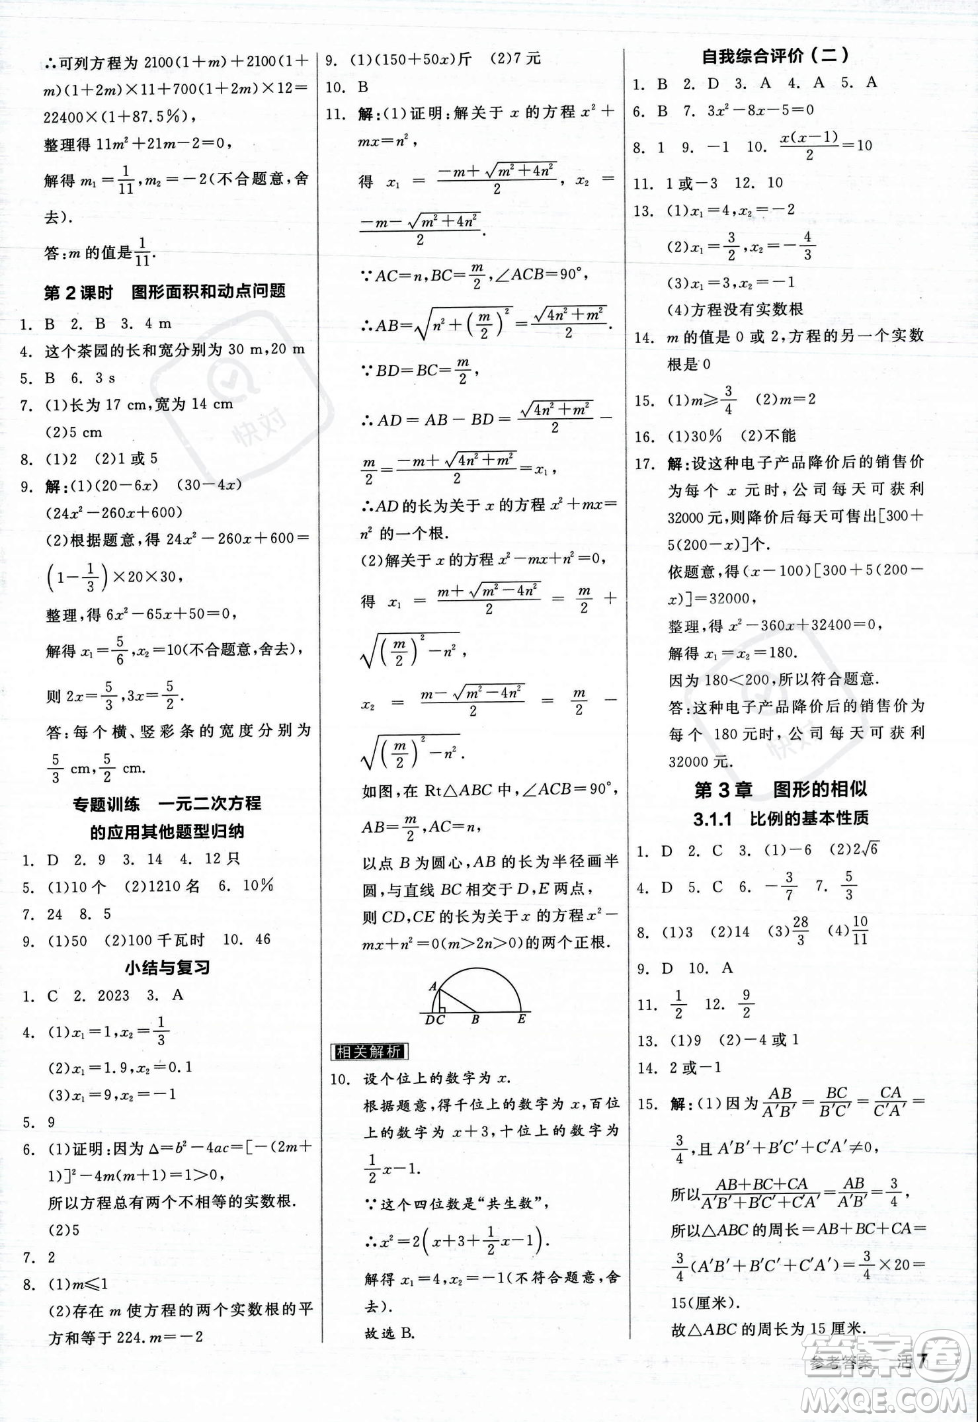 ∴可列方程为 2100(1+m)+2100(1+
m)(1+2m)×11+700(1+2m)×12=
22400×(1+87.5%),
整理得 11m²+21m-2=0,
解得 m₁=1/11,m₂=-2(不合题意,舍
去).
答:m 的值是1/11.
第 2 课时 图形面积和动点问题
1. B 2. B 3. 4 m
4. 这个茶园的长和宽分别为 30 m,20 m
5. B 6. 3 s
7. (1)长为 17 cm,宽为 14 cm
(2)5 cm
8. (1)2 (2)1 或 5
9. 解:(1)(20-6x) (30-4x)
(24x²-260x+600)
(2)根据题意,得 24x²-260x+600=
(1-1/3)×20×30,
整理,得 6x²-65x+50=0,
解得 x₁=5/6,x₂=10(不合题意,舍去),
则 2x=5/3,3x=5/2.
答:每个横、竖彩条的宽度分别为
5/3 cm,5/2 cm.
专题训练 一元二次方程
的应用其他题型归纳
1. D 2. 9 3. 14 4. 12 只
5. (1)10 个 (2)1210 名 6. 10%
7. 24 8. 5
9. (1)50 (2)100 千瓦时 10. 46
小结与复习
1. C 2. 2023 3. A
4. (1)x₁=1,x₂=1/3
(2)x₁=0.2,x₂=0.1
(3)x₁=9,x₂=-1
5. 9
6. (1)证明:因为 Δ=b²-4ac=[-(2m+
1)]²-4m(m+1)=1>0,
所以方程总有两个不相等的实数根.
(2)5
7. 2
8. (1)m≤1
(2)存在 m 使方程的两个实数根的平
方和等于 224. m=-2
9. (1)(150+50x)斤 (2)7 元
10. B
11. 解:(1)证明:解关于 x 的方程 x²+
mx=n²,
得 x₁ = (-m+√(m²+4n²))/2, x₂ =
(-m-√(m²+4n²))/2.
∵AC=n,BC=m/2,∠ACB=90°,
∴AB=√(n²+(m/2)²)=√(4n²+m²)/2.
∵BD=BC=m/2,
∴AD=AB-BD=√(4n²+m²)/2-
m/2=(-m+√(4n²+m²))/2=x₁,
∴AD 的长为关于 x 的方程 x²+mx=
n²的一个根.
(2)解关于 x 的方程 x²-mx+n²=0,
得 x₁ = (m+√(m²-4n²))/2 = m/2 +
√((m/2)²-n²),
x₂ = (m-√(m²-4n²))/2 = m/2 -
√((m/2)²-n²).
如图,在 Rt△ABC 中,∠ACB=90°,
AB=m/2,AC=n,
以点 B 为圆心,AB 的长为半径画半
圆,与直线 BC 相交于 D,E 两点,
则 CD,CE 的长为关于 x 的方程 x²-
mx+n²=0(m>2n>0)的两个正根.
A
DC B E
相关解析
10. 设个位上的数字为 x.
根据题意,得千位上的数字为 x,百位
上的数字为 x+3,十位上的数字为
1/2x-1.
∵这个四位数是“共生数”,
∴x²=2(x+3+1/2x-1),
解得 x₁=4,x₂=-1(不符合题意,舍
去).
故选 B.
自我综合评价(二)
1. B 2. D 3. A 4. A 5. A
6. B 7. 3x²-8x-5=0
8. 1 9. -1 10. x(x-1)/2=10
11. 1 或-3 12. 10
13. (1)x₁=4,x₂=-2
(2)x₁=3/2,x₂=-4/3
(3)x₁=x₂=1
(4)方程没有实数根
14. m 的值是 0 或 2,方程的另一个实数
根是 0
15. (1)m≥3/4 (2)m=2
16. (1)30% (2)不能
17. 解:设这种电子产品降价后的销售价
为每个 x 元时,公司每天可获利
32000 元,则降价后每天可售出[300+
5(200-x)]个.
依题意,得(x-100)[300+5(200-
x)]=32000,
整理,得 x²-360x+32400=0,
解得 x₁=x₂=180.
因为 180<200,所以符合题意.
答:这种电子产品降价后的销售价为
每个 180 元时,公司每天可获利
32000 元.
第 3 章 图形的相似
3.1.1 比例的基本性质
1. D 2. C 3. (1)-6 (2)2√6
4. D 5. C 6. -3/7 7. 5/3
8. (1)3 (2)14 (3)28/3 (4)10/11
9. D 10. A
11. 1/2 12. 9/2
13. (1)9 (2)-4 (3)1
14. 2 或-1
15. 解:(1)因为AB/A′B′=BC/B′C′=CA/C′A′=
3/4,且 A′B′+B′C′+C′A′=20 厘米,
所以(AB+BC+CA)/(A′B′+B′C′+C′A′)=AB/A′B′=3/4,
所以△ABC 的周长=AB+BC+CA=
3/4(A′B′+B′C′+C′A′)=3/4×20=
15(厘米).
故△ABC 的周长为 15 厘米.
参考答案 活 7
快对
快对
答案圈
MXQE.COM